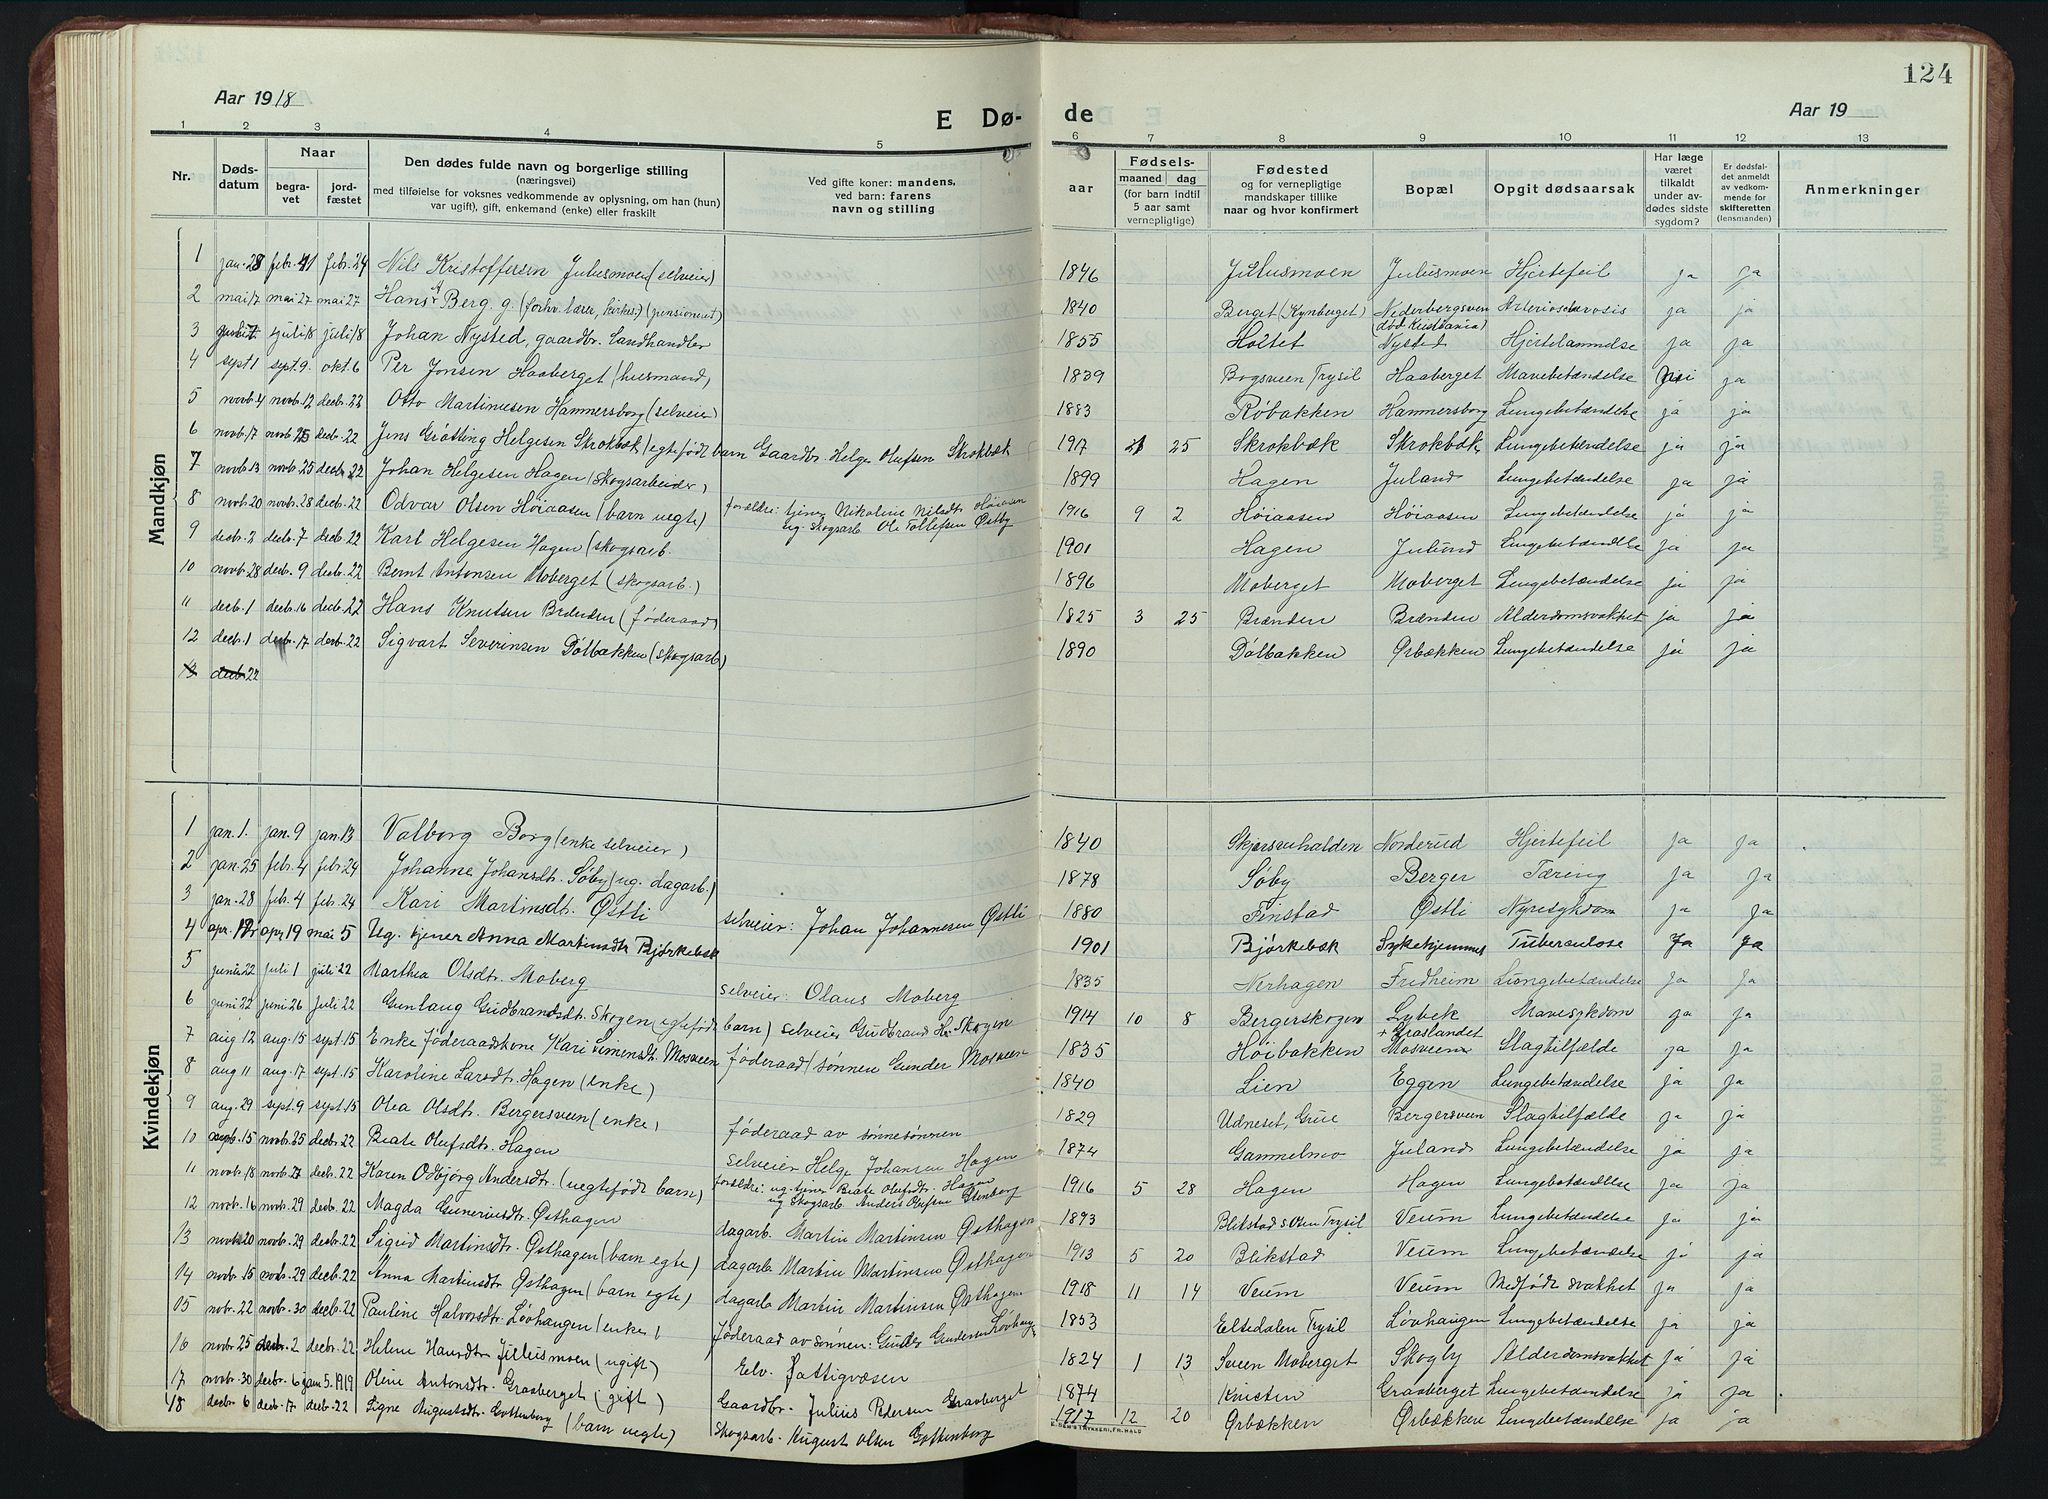 124
Aar 1918
E Dø-
de
Aar 19
1 2 3 4 5 6 7 8 9 10 11 12 13
Nr.
Døds-datum
Naar
begra-vet
jord-fæstet
Den dødes fulde navn og borgerlige stilling
(næringsvei)
med tilføielse for voksnes vedkommende av oplysning, om han (hun)
var ugift), gift, enkemand (enke) eller fraskilt
Ved gifte koner: mandens,
ved barn: farens
navn og stilling
aar
Fødsels-
maaned dag
(for barn indtil
5 aar samt
vernepligtige)
Fødested
og for vernepligtige
mandskaper tillike
naar og hvor konfirmert
Bopæl
Opgit dødsaarsak
Har læge
været
tilkaldt
under av-
dødes sidste
sygdom?
Er dødsfal-
det anmeldt
av vedkom-
mende for
skifteretten
(lensmanden)
Anmerkninger
Mandkjøn
1 jan. 28 febr. febr. 24 Nils Kristoffersen Julusmoen (selveier) 1846 Julusmoen Julusmoen Hjertefeil ja ja
2 mai 17 mai 27 mai 27 Hans A Berg. g. (forhv. lærer, kirkes.) (pensioneret) 1840 Berget (Kynberget) Nederbergsveen (død Kristiania) Arteriosclerosis ja ja
3 juli 18 juli 18 Johan Nysted, gaardbr. Landhandler 1855 Holtet Nysted Hjertelammelse ja ja
4 sept 1 sept. 9. okt. 6 Per Jonsen Haaberget (husmand) 1839 Bogsveen Trysil Haaberget Mavebetændelse nei ja
5 novb. 4 novb. 12 decb. 22 Otto Martinusen Hammersborg (selveier) 1883 Røbakken Hammersborg Lungebetændelse ja ja
6 novb. 17 novb. 25 decb. 22 Jens Grøtting Helgesen Skrokbæk (egtefødt barn Gaardbr. Helge Olufsen Skrokbæk 1917 25 Skrokbæk Skrokbæk Lungebetændelse ja ja
7 novb. 13 novb. 25 decb. 22 Johan Helgesen Hagen (skogsarbeider) 1899 Hagen Juland Lungebetændelse ja ja
8 novb. 20 novb. 28 decb. 22 Odvar Olsen Høiaasen (barn uegte) forældre: tjener Nikoline Nilsdt. Høiaasen ug. skogsarb. Ole Tollefsen Østby 1916 9 2 Høiaasen Høiaasen Lungebetændelse ja ja
9 decbr. 2 decb. 7 decb. 22 Karl Helgesen Hagen (skogsarb. 1901 Hagen Julund Lungebetændelse ja ja
10 novb. 28 decb. 9 decb. 22 Bernt Antonsen Moberget (skogsarb.) 1896 Moberget Moberget Lungebetændelse ja ja
11 decb. 1 decb. 16 decb. 22 Hans Knutsen Brænden (føderaad) 1825 3 25 Brænden Brænden Alderdomsvakhet ja ja
12 decb. 1 decb. 17 decb. 22 Sigvart Severinsen Dølbakken (skogsarb) 1890 Dølbakken Ørbækken Lungebetændelse ja ja
13 decb. 22
Kvindekjøn
1 jan. 1. jan. 9 jan. 13 Valborg Borg (enke selveier) 1840 Norderud Hjertefeil ja ja
2 jan. 25 febr. 4 febr. 24 Johanne Johansdt. Søby (ug. dagarb.) 1878 Søby Berger Tæring ja ja
3 jan. 28 febr. 4 febr. 24 Kari Martinsdt. Østli selveier: Johan Johannesen Østli 1880 Finstad Østli Nyresykdom ja ja
4 apr. 12 apr. 19 mai 5 Ug. tjener Anna Martinsdtr Bjørkebæk 1901 Bjørkebæk Sykehjemmet Tuberculose Ja ja
5 juni 22 juli 1 juli 22 Marthea Olsdtr. Moberg selveier: Olaus Moberg 1835 Nerhagen Fredheim Lungebetændelse ja ja
6 juni 22 juni 26 juli 22 Gunlaug Gudbrandsdt. Skogen (egtefødt barn) selveier Gudbrand H. Skogen 1914 10 8 Bergerskogen Lybek + Graslandet Mavesykdom ja ja
7 aug 12 aug. 15 sept. 15 Enke føderaadskone Kari Simensdt. Mosveen føderaad (sønnen Gunder Mosveen 1835 Høibakken Mosveen Slagtilfælde ja ja
8 aug 11 aug. 17 sept. 15 Karoline Larsdt. Hagen (enke) 1840 Lien Eggen Lungebetændelse ja ja
9 aug. 29 sept. 9 sept. 15 Olea Olsdt. Bergersveen (enke) føderaad av sønnesønnen 1829 Udneset, Grue Bergersveen Slagtilfælde ja ja
10 15 novb. 25 decb. 22 Beate Olufsdt. Hagen selveier Helge Johansen Hagen 1874 Gammelmo Juland Lungebetændelse ja ja
11 novb. 18 novb. 27 decb. 22 Karen Odbjørg Andersdt. (uegtefødt barn) forældre: ug. tjener Beate Olufsdt. Hagen ug skogsarb. Anders Olufsen 1916 5 28 Hagen Hagen Lungebetændelse ja ja
12 novb. 16 novb. 29 decb. 22 Magda Guneriusdt. Østhagen dagarb. Martin Martinsen Østhagen 1893 Blikstad s. Olen Trysil Veum Lungebetændelse ja ja
13 novb. 20 novb. 29 decb. 22 Sigrid Martinsdt. Østhagen (barn egte) dagarb Martin Martinsen Østhagen 1913 5 20 Blikstad Veum Lungebetændelse ja ja
14 novb. 15 novb. 29 decb. 22 Anna Martinsdt. Østhagen (barn egte) dagarb Martin Martinsen Østhagen 1918 11 14 Veum Veum Medfødt svakhet ja ja
15 nob. 22 novb. 30 decb. 22 Pauline Halvorsdt. Løvhaugen (enke) føderaad av sønnen: Gunder Gundersen Løvhaug 1853 Eltsdalen Trysil Løvhaugen Lungebetændelse ja ja
16 novb. 25 decb. 2 decb. 22 Helene Hansdtr. Julusmoen (ugift) Elv. Fattigvæsen 1824 1 13 Sveen Moberget Skogby Alderdomsvakhet ja ja
17 novb. 30 decbr. 6 jan. 5. 1919 Oline Antonsdt. Graaberget (gift) Gaardbr. Julius Pedersen Graaberget 1874 Kvisten Graaberget Lungebetændelse ja ja
18 decbr. 6 decb. 17 decb. 22 Signe Augustsdt. Gottenborg (barn uegte) Skogsarb. August Olsen Gottenborg 1917 12 20 Ørbækken Ørbækken Lungebetændelse ja ja